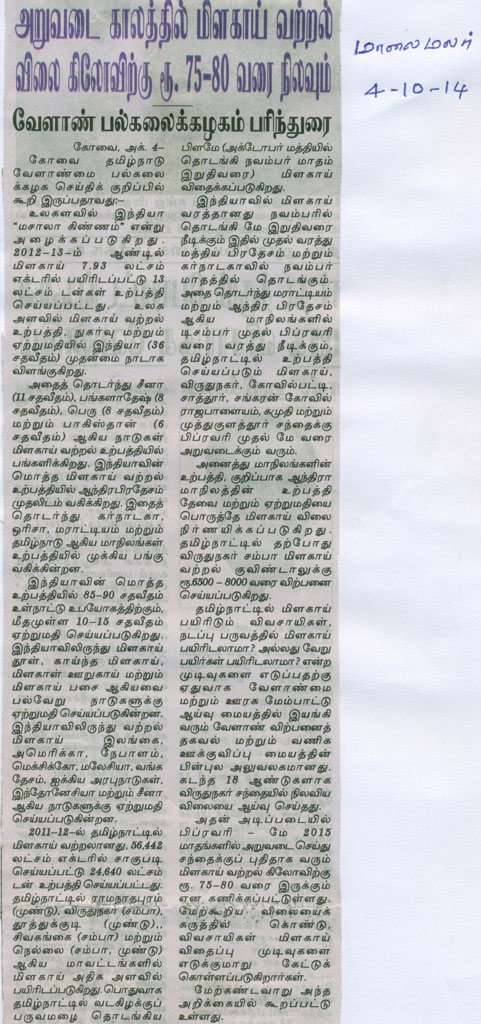 அறுவடை காலத்தில் மிளகாய் வற்றல்
விலை கிலோவிற்கு ரூ. 75-80 வரை நிலவும்
வேளாண் பல்கலைக்கழகம் பரிந்துரை
மாலை மலர்
4-10-14
கோவை, அக். 4-
கோவை தமிழ்நாடு
வேளாண்மை பல்கலை
கழக செய்திக் குறிப்பில்
கூறி இருப்பதாவது:-
உலகளவில் இந்தியா
"மசாலா கிண்ணம்" என்று
அழைக்கப்படுகிறது.
2012-13-ம் ஆண்டில்
மிளகாய் 7.93 லட்சம்
எக்டரில் பயிரிடப்பட்டு 13
லட்சம் டன்கள் உற்பத்தி
செய்யப்பட்டது. உலக
அளவில் மிளகாய் வற்றல்
உற்பத்தி, நுகர்வு மற்றும்
ஏற்றுமதியில் இந்தியா (36
சதவீதம்) முதன்மை நாடாக
விளங்குகிறது.
அதைத் தொடர்ந்து சீனா
(11 சதவீதம்), பங்களாதேஷ் (8
சதவீதம்), பெரு (8 சதவீதம்)
மற்றும் பாகிஸ்தான் (6
சதவீதம்) ஆகிய நாடுகள்
மிளகாய் வற்றல் உற்பத்தியில்
பங்களிக்கிறது. இந்தியாவின்
மொத்த மிளகாய் வற்றல்
உற்பத்தியில் ஆந்திரபிரதேசம்
முதலிடம் வகிக்கிறது. இதைத்
தொடர்ந்து கர்நாடகா,
ஒரிசா, மராட்டியம் மற்றும்
தமிழ்நாடு ஆகிய மாநிலங்கள்
உற்பத்தியில் முக்கிய பங்கு
வகிக்கின்றன.
இந்தியாவின் மொத்த
உற்பத்தியில் 85-90 சதவீதம்
உள்நாட்டு உபயோகத்திற்கும்,
மீதமுள்ள 10-15 சதவீதம்
ஏற்றுமதி செய்யப்படுகிறது.
இந்தியாவிலிருந்து மிளகாய்
தூள், காய்ந்த மிளகாய்,
மிளகாள் ஊறுகாய் மற்றும்
மிளகாய் பசை ஆகியவை
பல்வேறு நாடுகளுக்கு
ஏற்றுமதி செய்யப்படுகின்றன.
இந்தியாவிலிருந்து வற்றல்
மிளகாய் இலங்கை,
அமெரிக்கா, நேபாளம்,
மெக்சிக்கோ, மலேசியா, வங்க
தேசம், ஐக்கிய அரபுநாடுகள்,
இந்தோனேசியா மற்றும் சீனா
ஆகிய நாடுகளுக்கு ஏற்றுமதி
செய்யப்படுகின்றன.
2011-12-ல் தமிழ்நாட்டில்
மிளகாய் வற்றலானது, 56,442
லட்சம் எக்டரில் சாகுபடி
செய்யப்பட்டு 24,640 லட்சம்
டன் உற்பத்தி செய்யப்பட்டது.
தமிழ்நாட்டில் ராமநாதபுரம்
(முண்டு), விருதுநகர் (சம்பா),
தூத்துக்குடி (முண்டு),,
சிவகங்கை (சம்பா) மற்றும்
நெல்லை (சம்பா, முண்டு)
ஆகிய மாவட்டங்களில்
மிளகாய் அதிக அளவில்
பயிரிடப்படுகிறது. பொதுவாக
தமிழ்நாட்டில் வடகிழக்குப்
பருவமழை தொடங்கிய
பிளமே (அக்டோபர் மத்தியில்
தொடங்கி நவம்பர் மாதம்
இறுதிவரை) மிளகாய்
விதைக்கப்படுகிறது.
இந்தியாவில் மிளகாய்
வரத்தானது நவம்பரில்
தொடங்கி மே இறுதிவரை
நீடிக்கும். இதில் முதல் வரத்து
மத்திய பிரதேசம் மற்றும்
கர்நாடகாவில் நவம்பர்
மாதத்தில் தொடங்கும்.
அதை தொடர்ந்து மராட்டியம்
மற்றும் ஆந்திர பிரதேசம்
ஆகிய மாநிலங்களில்
டிசம்பர் முதல் பிப்ரவரி
வரை வரத்து நீடிக்கும்,
தமிழ்நாட்டில் உற்பத்தி
செய்யப்படும் மிளகாய்,
விருதுநகர், கோவில்பட்டி,
சாத்தூர், சங்கரன் கோவில்
ராஜபாளையம், கமுதி மற்றும்
முத்துகுளத்தூர் சந்தைக்கு
பிப்ரவரி முதல் மே வரை
அறுவடைக்கும் வரும்.
அனைத்து மாநிலங்களின்
உற்பத்தி, குறிப்பாக ஆந்திரா
மாநிலத்தின் உற்பத்தி
தேவை மற்றும் ஏற்றுமதியை
பொருத்தே மிளகாய் விலை
நிர்ணயிக்கப்படுகிறது.
தமிழ்நாட்டில் தற்போது
விருதுநகர் சம்பா மிளகாய்
வற்றல் குவிண்டாலுக்கு
ரூ.6500 – 8000 வரை விற்பனை
செய்யப்படுகிறது.
தமிழ்நாட்டில் மிளகாய்
பயிரிடும் விவசாயிகள்,
நடப்பு பருவத்தில் மிளகாய்
பயிரிடலாமா? அல்லது வேறு
பயிர்கள் பயிரிடலாமா? என்ற
முடிவுகளை எடுப்பதற்கு
ஏதுவாக வேளாண்மை
மற்றும் ஊரக மேம்பாட்டு
ஆய்வு மையத்தில் இயங்கி
வரும் வேளாண் விற்பனைத்
தகவல் மற்றும் வணிக
ஊக்குவிப்பு மையத்தின்
பின்புல அலுவலகமானது.
கடந்த 18 ஆண்டுகளாக
விருதுநகர் சந்தையில் நிலவிய
விலையை ஆய்வு செய்தது.
அதன் அடிப்படையில்
பிப்ரவரி – மே 2015
மாதங்களில் அறுவடை செய்து
சந்தைக்குப் புதிதாக வரும்
மிளகாய் வற்றல் கிலோவிற்கு
ரூ. 75-80 வரை இருக்கும்
என கணிக்கப்பட்டுள்ளது.
மேற்கூறிய விலையைக்
கருத்தில் கொண்டு,
விவசாயிகள் மிளகாய்
விதைப்பு முடிவுகளை
எடுக்குமாறு கேட்டுக்
கொள்ளப்படுகிறார்கள்.
மேற்கண்டவாறு அந்த
அறிக்கையில் கூறப்பட்டு
உள்ளது.